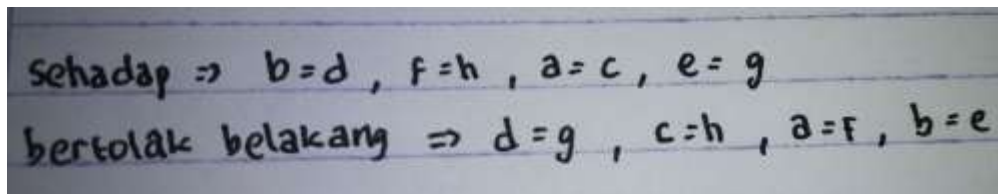 sehadap => b=d, f=h, a=c, e=g
bertolak belakang => d=g, c=h, a=f, b=e